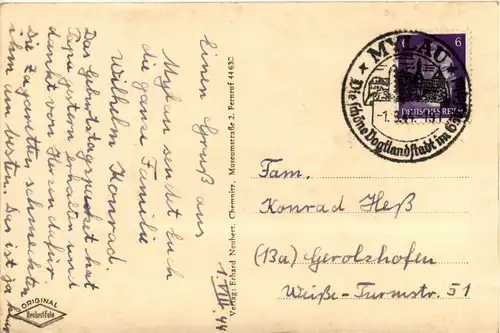 Einen Gruß aus
Mylau sendet Euch
die ganze Familie
Wilhelm Konrad.
Das Geburtstagspacket hat
Papa gestern erhalten und
dankt von Herzen dafür.
Die Zigaretten schmeckten
ihm am besten. Das ist ja
1.VIII.44
Verlag: Erhard Neubert, Chemnitz, Museumstraße 2. Fernruf 44630
ORIGINAL
Neubert-Foto
★ MYLAU ★
Die schöne Vogtlandstadt im
6
DEUTSCHES REICH
Fam.
Konrad Heß
(13a) Gerolzhofen
Weiße-Turmstr. 51